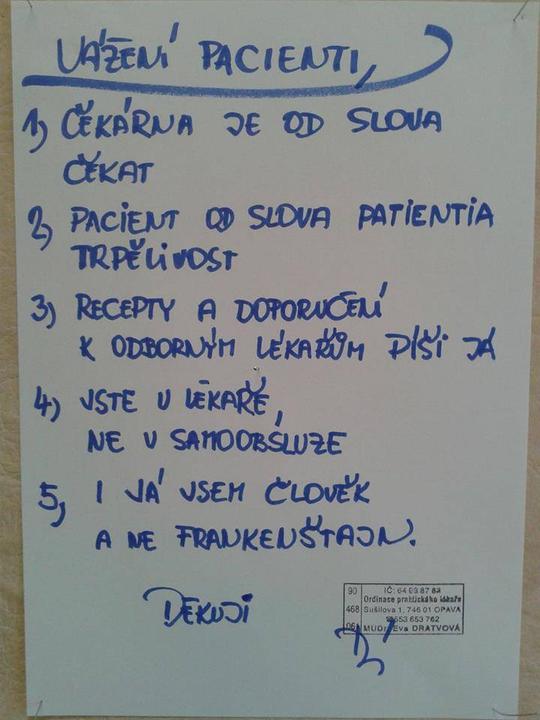 VÁŽENÍ PACIENTI,
1) ČEKÁRNA JE OD SLOVA
ČEKAT
2) PACIENT OD SLOVA PATIENTIA
TRPĚLIVOST
3) RECEPTY A DOPORUČENÍ
K ODBORNÝM LÉKAŘŮM PÍŠI JÁ
4) JSTE U LÉKAŘE,
NE V SAMOOBSLUZE
5) I JÁ JSEM ČLOVĚK
A NE FRANKENŠTAJN.
DĚKUJI
90 IČ: 64 93 87 84
Ordinace praktického lékaře
468 Sušilova 1, 746 01 OPAVA
☎553 653 762
061 MUDr. Eva DRATVOVÁ